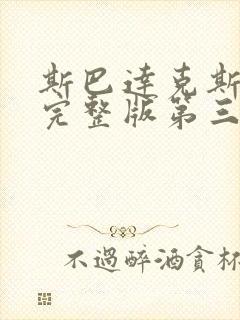 斯巴達克斯
完整版第三
不過醉酒貪杯